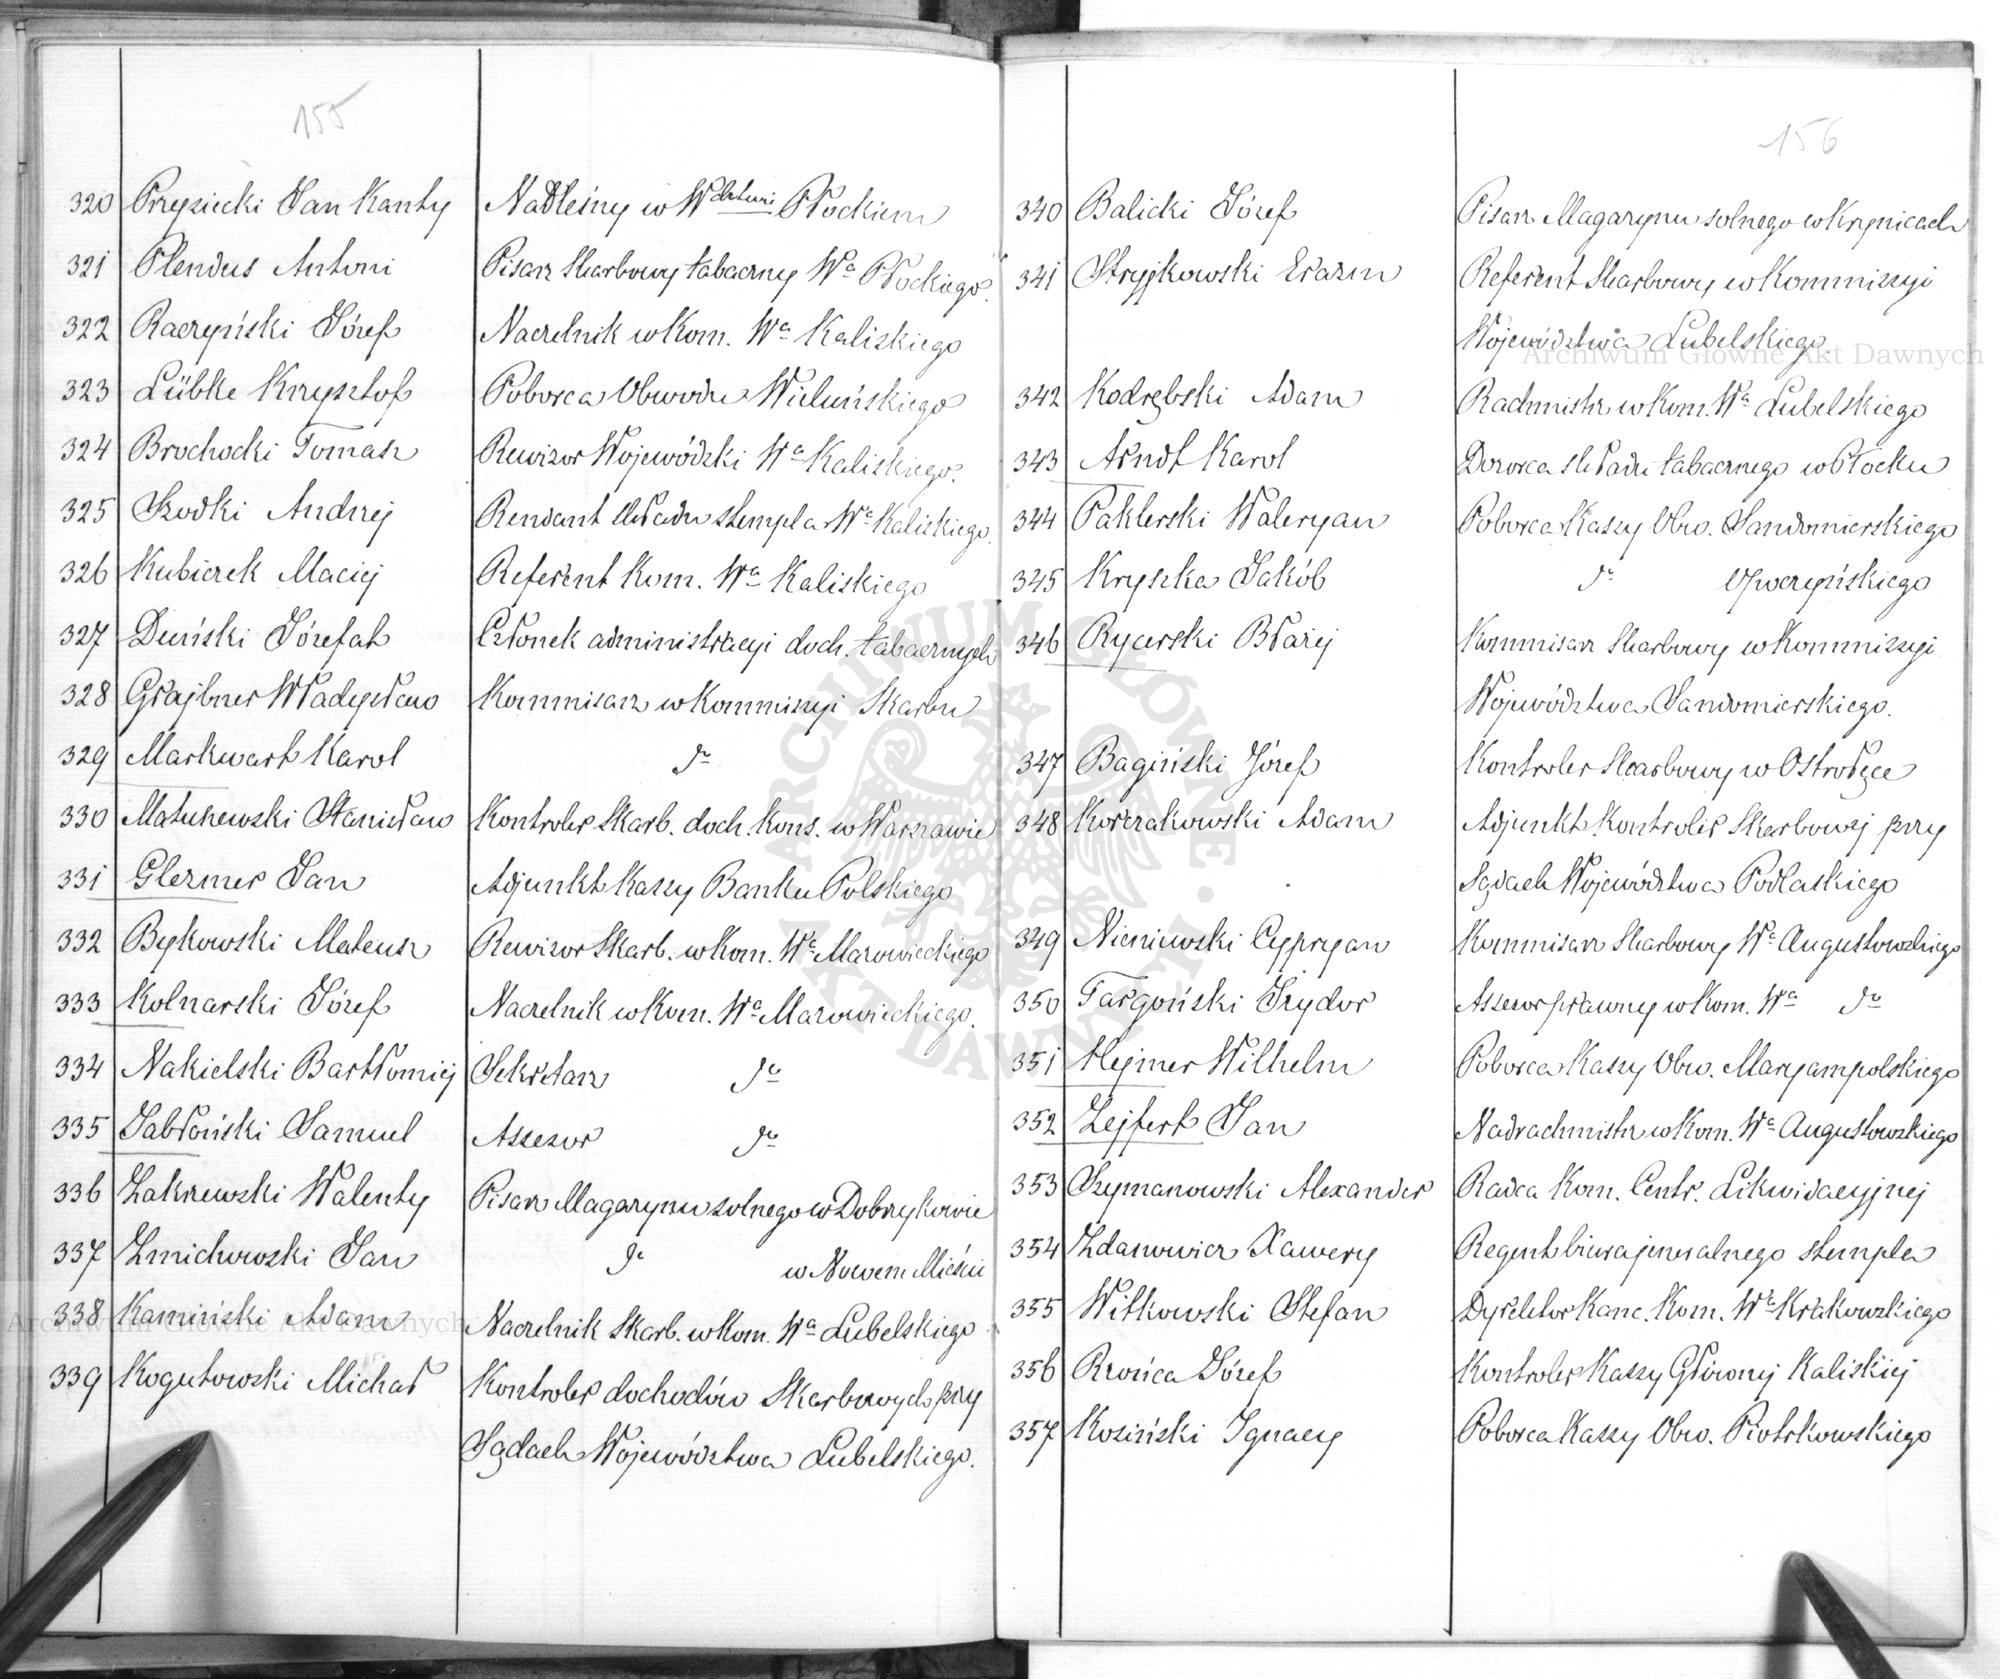 155
320 Przysiecki Jan Kanty Nadleśny w Wdztwie Płockiem
321 Plendus Antoni Pisarz Skarbowy tabaczny Wa Płockiego.
322 Raczyński Józef Naczelnik w Kom. Wa Kaliskiego
323 Lübke Krzysztof Poborca Obwodu Wieluńskiego
324 Brochocki Tomasz Rewizor Wojewódzki Wa Kaliskiego.
325 Szodki Andrzej Rendant składu stempla Wa Kaliskiego.
326 Kubiczek Maciej Referent Kom. Wa Kaliskiego
327 Duński Józefat Członek administracyi doch. tabacznych
328 Grajbner Władysław Kommisarz w Kommissyi Skarbu
329 Markwart Karol do
330 Matuszewski Stanisław Kontroler Skarb. doch. kons. w Warszawie
331 Glezmer Jan Adjunkt Kassy Banku Polskiego
332 Bykowski Mateusz Rewizor Skarb. w Kom. Wa Mazowieckiego
333 Kolnarski Józef Naczelnik w Kom. Wa Mazowieckiego.
334 Nakielski Bartłomiej Sekretarz do
335 Jabłoński Samuel Assesor do
336 Zakrzewski Walenty Pisarz Magazynu solnego w Dobrzykowie
337 Żmichowski Jan do w Nowem Mieście
338 Kamiński Adam Naczelnik Skarb. w Kom. Wa Lubelskiego
339 Kogutowski Michał Kontroler dochodów Skarbowych przy
Sądach Województwa Lubelskiego.
156
340 Balicki Józef Pisarz Magazynu solnego w Krynicach
341 Stryjkowski Erazm Referent Skarbowy w Kommissyi
Województwa Lubelskiego.
342 Kodrębski Adam Rachmistrz w Kom. Wa Lubelskiego
343 Arndt Karol Dozorca składu tabacznego w Płocku
344 Paklerski Waleryan Poborca Kassy Obw. Sandomierskiego
345 Kryszka Jakób do Opoczyńskiego
346 Rycerski Błażej Kommisarz Skarbowy w Kommissyi
Województwa Sandomierskiego.
347 Bagiński Józef Kontroler Skarbowy w Ostrołęce
348 Korczakowski Adam Adjunkt Kontroler Skarbowej przy
Sądach Województwa Podlaskiego
349 Nieniewski Cypryan Kommisarz Skarbowy Wa Augustowskiego
350 Targoński Izydor Assesor prawny w Kom. Wa do
351 Hejmer Wilhelm Poborca Kassy Obw. Maryampolskiego
352 Zejfert Jan Nadrachmistrz w Kom. Wa Augustowskiego
353 Szymanowski Alexander Radca Kom. Centr. Likwidacyjnej
354 Zdanowicz Xawery Regent biura jeneralnego stempla
355 Witkowski Stefan Dyrektor Kanc. Kom. Wa Krakowskiego
356 Rzońca Józef Kontroler Kassy Głównej Kaliskiej
357 Kosiński Ignacy Poborca Kassy Obw. Piotrkowskiego
Archiwum Główne Akt Dawnych
Archiwum Główne Akt Dawnych
ARCHIWUM GŁÓWNE AKT DAWNYCH